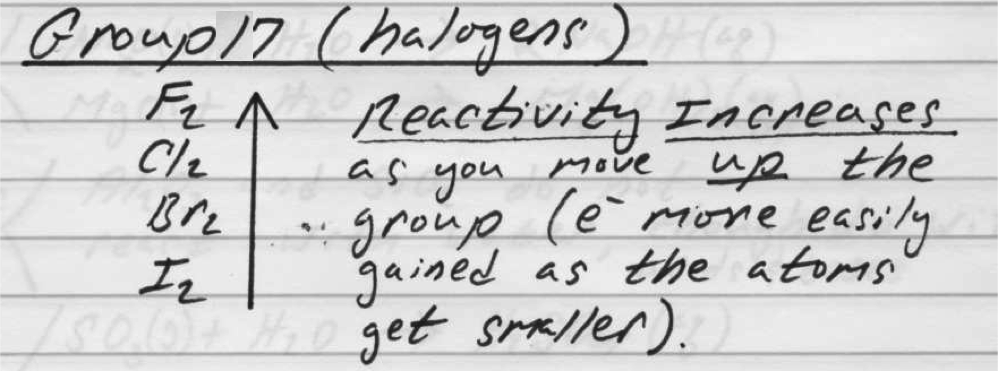 Group 17 (halogens)
F₂ Reactivity Increases
Cl₂ as you move up the
Br₂ group (e⁻ more easily
I₂ gained as the atoms
get smaller).